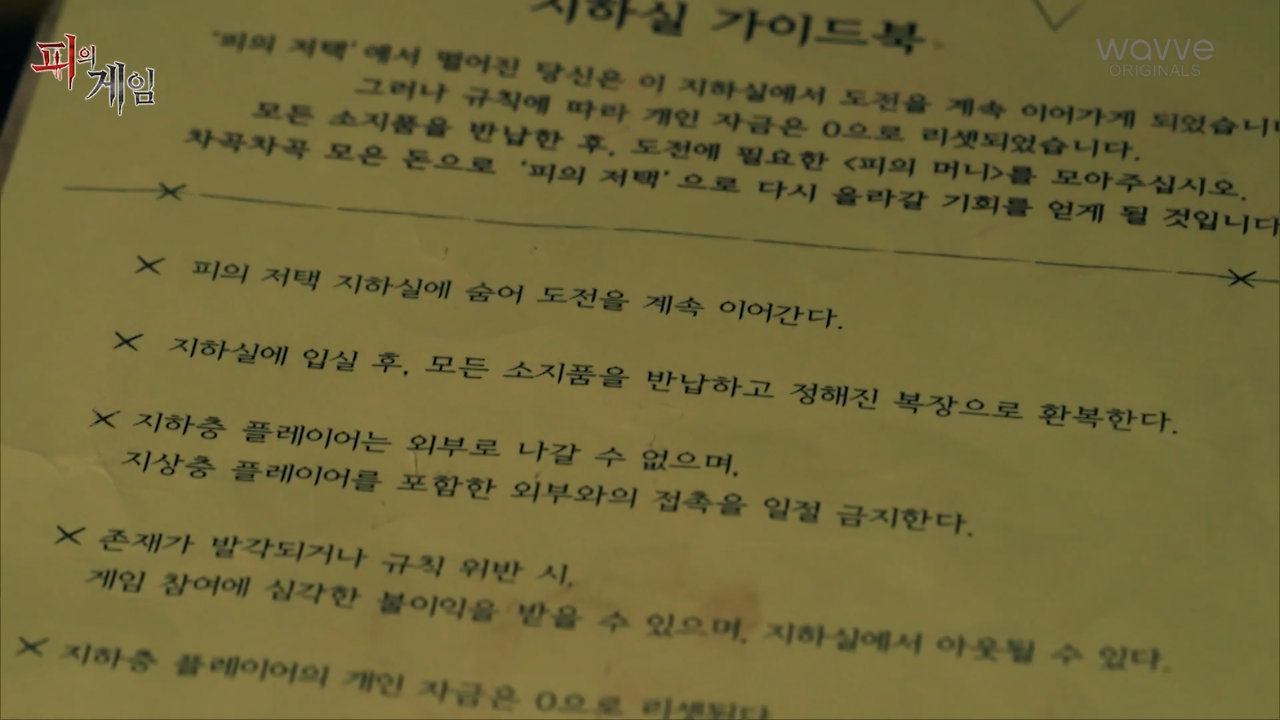 피의 게임
wavve
ORIGINALS
지하실 가이드북
'피의 저택'에서 떨어진 당신은 이 지하실에서 도전을 계속 이어가게 되었습니
그러나 규칙에 따라 개인 자금은 0으로 리셋되었습니다.
모든 소지품을 반납한 후, 도전에 필요한 <피의 머니>를 모아주십시오.
차곡차곡 모은 돈으로 '피의 저택'으로 다시 올라갈 기회를 얻게 될 것입니다
피의 저택 지하실에 숨어 도전을 계속 이어간다.
지하실에 입실 후, 모든 소지품을 반납하고 정해진 복장으로 환복한다.
지하층 플레이어는 외부로 나갈 수 없으며,
지상층 플레이어를 포함한 외부와의 접촉을 일절 금지한다.
존재가 발각되거나 규칙 위반 시,
게임 참여에 심각한 불이익을 받을 수 있으며, 지하실에서 아웃될 수 있다.
지하층 플레이어의 개인 자금은 0으로 리셋된다